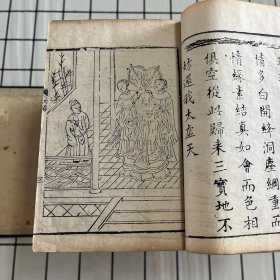 情多白開緣洞塵綱重而
情緣盡結真如會而色相
俱空從此歸來三寶地不
妨還我太虛天